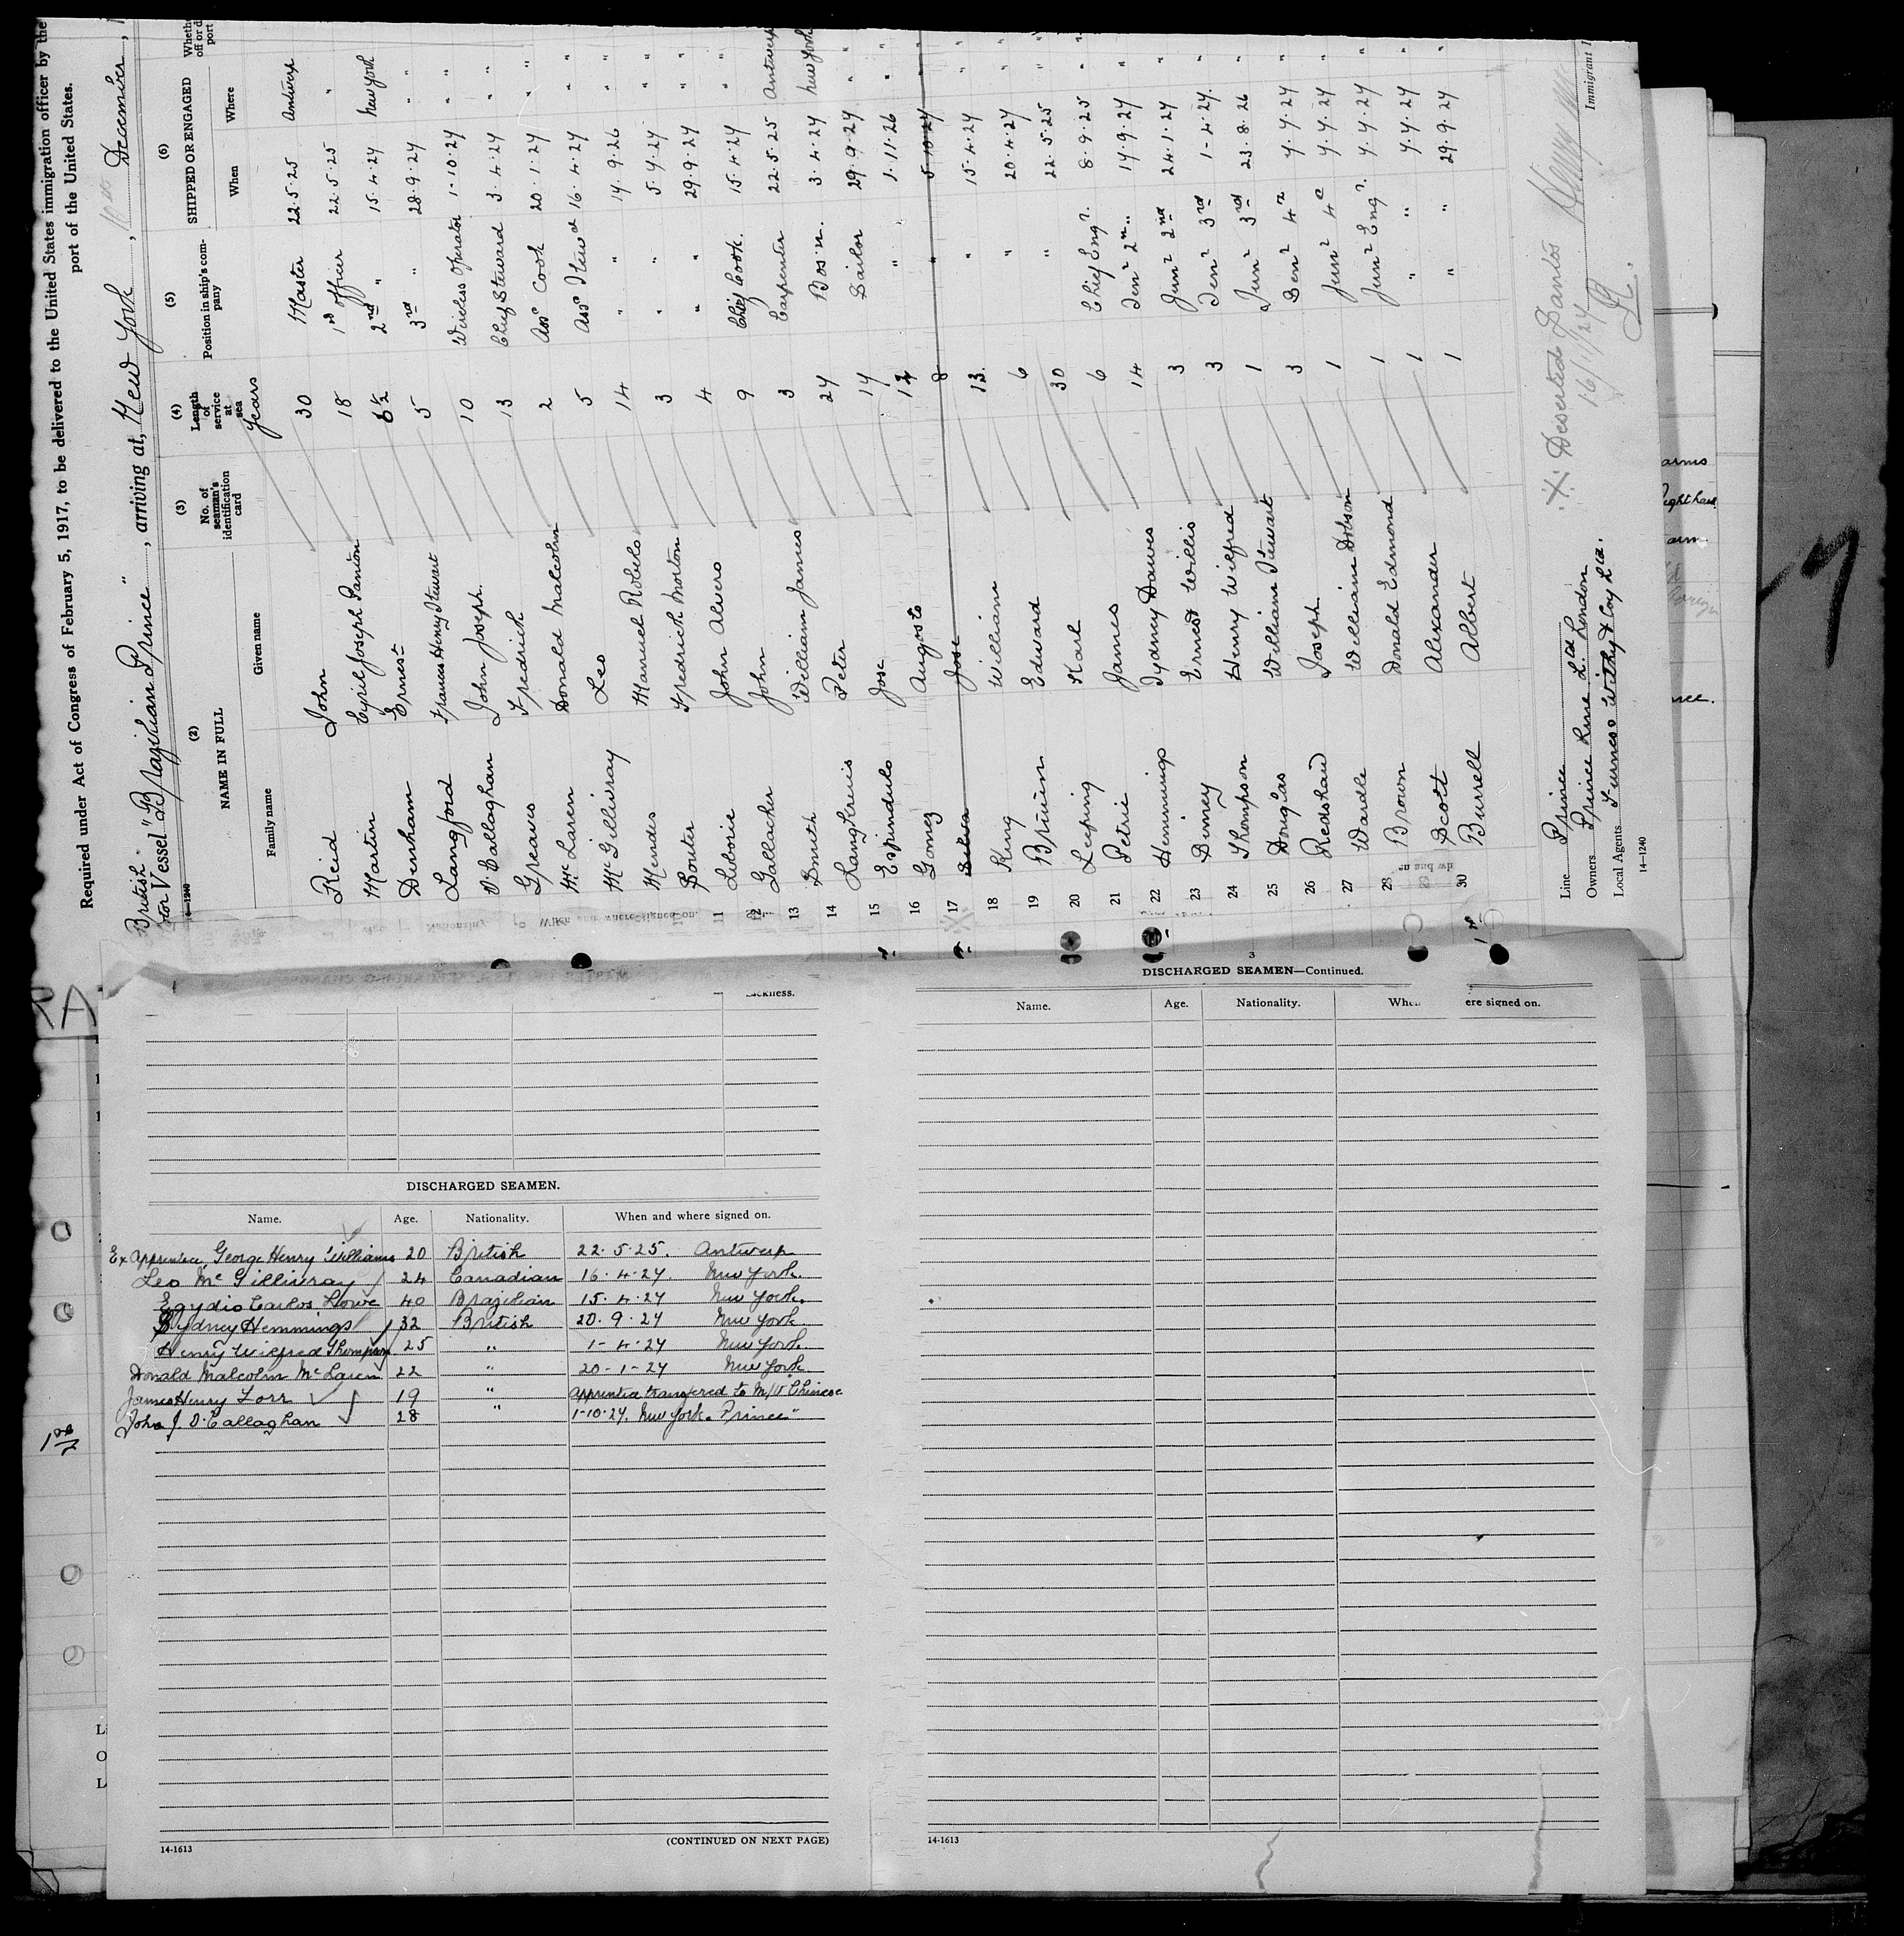 Required under Act of Congress of February 5, 1917, to be delivered to the United States immigration officer by the
port of the United States.
British
tor Vessel "Brazilian Prince", arriving at, New York, December,
14-1240
(2) (3) (4) (5) (6)
NAME IN FULL
Family name Given name
No. of seaman's identification card
Length of service at sea
Years
Position in ship's company
SHIPPED OR ENGAGED
When Where
Reid John 30 Master 22.5.25 Antwerp
Martin Cyril Joseph Panton 18 1st officer 22.5.25 "
Denham Ernest 2nd " 15.4.27 New York
Langford Frances Henry Stewart 5 3rd " 28.9.27 "
O'Callaghan John Joseph 10 Wireless Operator 1-10.27 "
Greaves Fredrick 13 Chief Steward 3.4.27 "
McLaren Donald Malcolm 2 Asst Cook 20.1.27 "
McGillivray Leo 5 Asst Steward 16.4.27 "
Mendis Manuel Robelo 14 " 17.9.26 "
Souter Fredrick Morton 3 " 5.7.27 "
11 John Alvero 4 " 29.9.27 "
12 Gallacher John 9 Chief Cook 15.4.27 "
13 Smith William James 3 Carpenter 22.5.25 Antwerp
14 Peter 27 Bos'n. 3.4.27 New York
15 Espindulo Jose 17 Sailor 29.9.27 "
16 Gomez Augosto " 1.11.26 "
17 Silva Jose 8 " 5.10.27 "
18 King William 13 " 15.4.27 "
19 Brüin Edward 6 " 20.4.27 "
20 Leeping Karl 30 " 22.5.25 "
21 Petrie James 6 Chief Engr. 8.9.25 "
22 Hemmings Sydney Dawes 14 Senr 2nd 17.9.27 "
23 Dinney Ernest Willis 3 Junr 2nd 24.1.27 "
24 Thompson Henry Wilfred 3 Senr 3rd 1-4.27 "
25 Douglas William Stewart 1 Junr 3rd 23.8.26 "
26 Redshaw Joseph 3 Senr 4th 7.7.27 "
27 Wardle William Dobson 1 Junr 4th 7.7.27 "
28 Brown Donald Edmond 1 Junr Engr. 7.7.27 "
Scott Alexander 1 " 7.7.27 "
30 Burrell Albert 1 " 29.9.27 "
Deserted Santos
16/11/27
Line Prince
Owners Prince Line Ltd London
Local Agents Furness Withy & Coy Ltd.
14-1240
Immigrant I
DISCHARGED SEAMEN.
Name. Age. Nationality. When and where signed on.
Ex Apprentice, George Henry Williams 20 British 22.5.25. Antwerp
Leo McGillivray 24 Canadian 16.4.27. New York.
Egydio Carlos Lowe 40 Brazilian 15.4.27 New York.
Sydney Hemmings 32 British 20.9.27 New York
Henry Wilfred Thompson 25 " 1-4.27 New York.
Donald Malcolm McLaren 22 " 20-1-27 New York
James Henry Torr 19 " Apprentice transfered to M/V "Chinese
John J. O'Callaghan 28 " 1-10.27. New York. Prince"
14-1613
(CONTINUED ON NEXT PAGE)
3
DISCHARGED SEAMEN—Continued.
Name. Age. Nationality. Whe ere signed on.
14-1613